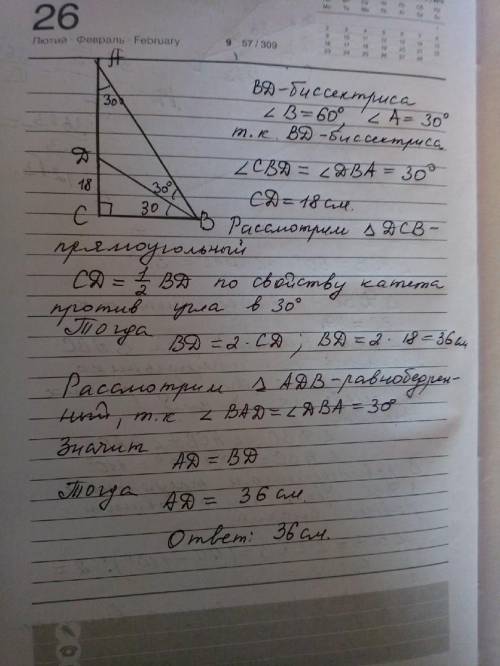 26
Лютий · Февраль · February
9 57 / 309
A
30°
D
18
30°
C
30
B
BD-биссектриса
∠B=60°, ∠A=30°
т.к. BD-биссектриса
∠CBD=∠DBA=30°
CD=18см.
Рассмотрим △DCB-
прямоугольный
CD=1/2 BD по свойству катета
против угла в 30°
Тогда
BD=2·CD; BD=2·18=36см
Рассмотрим △ADB-равнобедрен-
ный, т.к ∠BAD=∠DBA=30°
Значит
AD=BD
Тогда AD= 36см
Ответ: 36см.